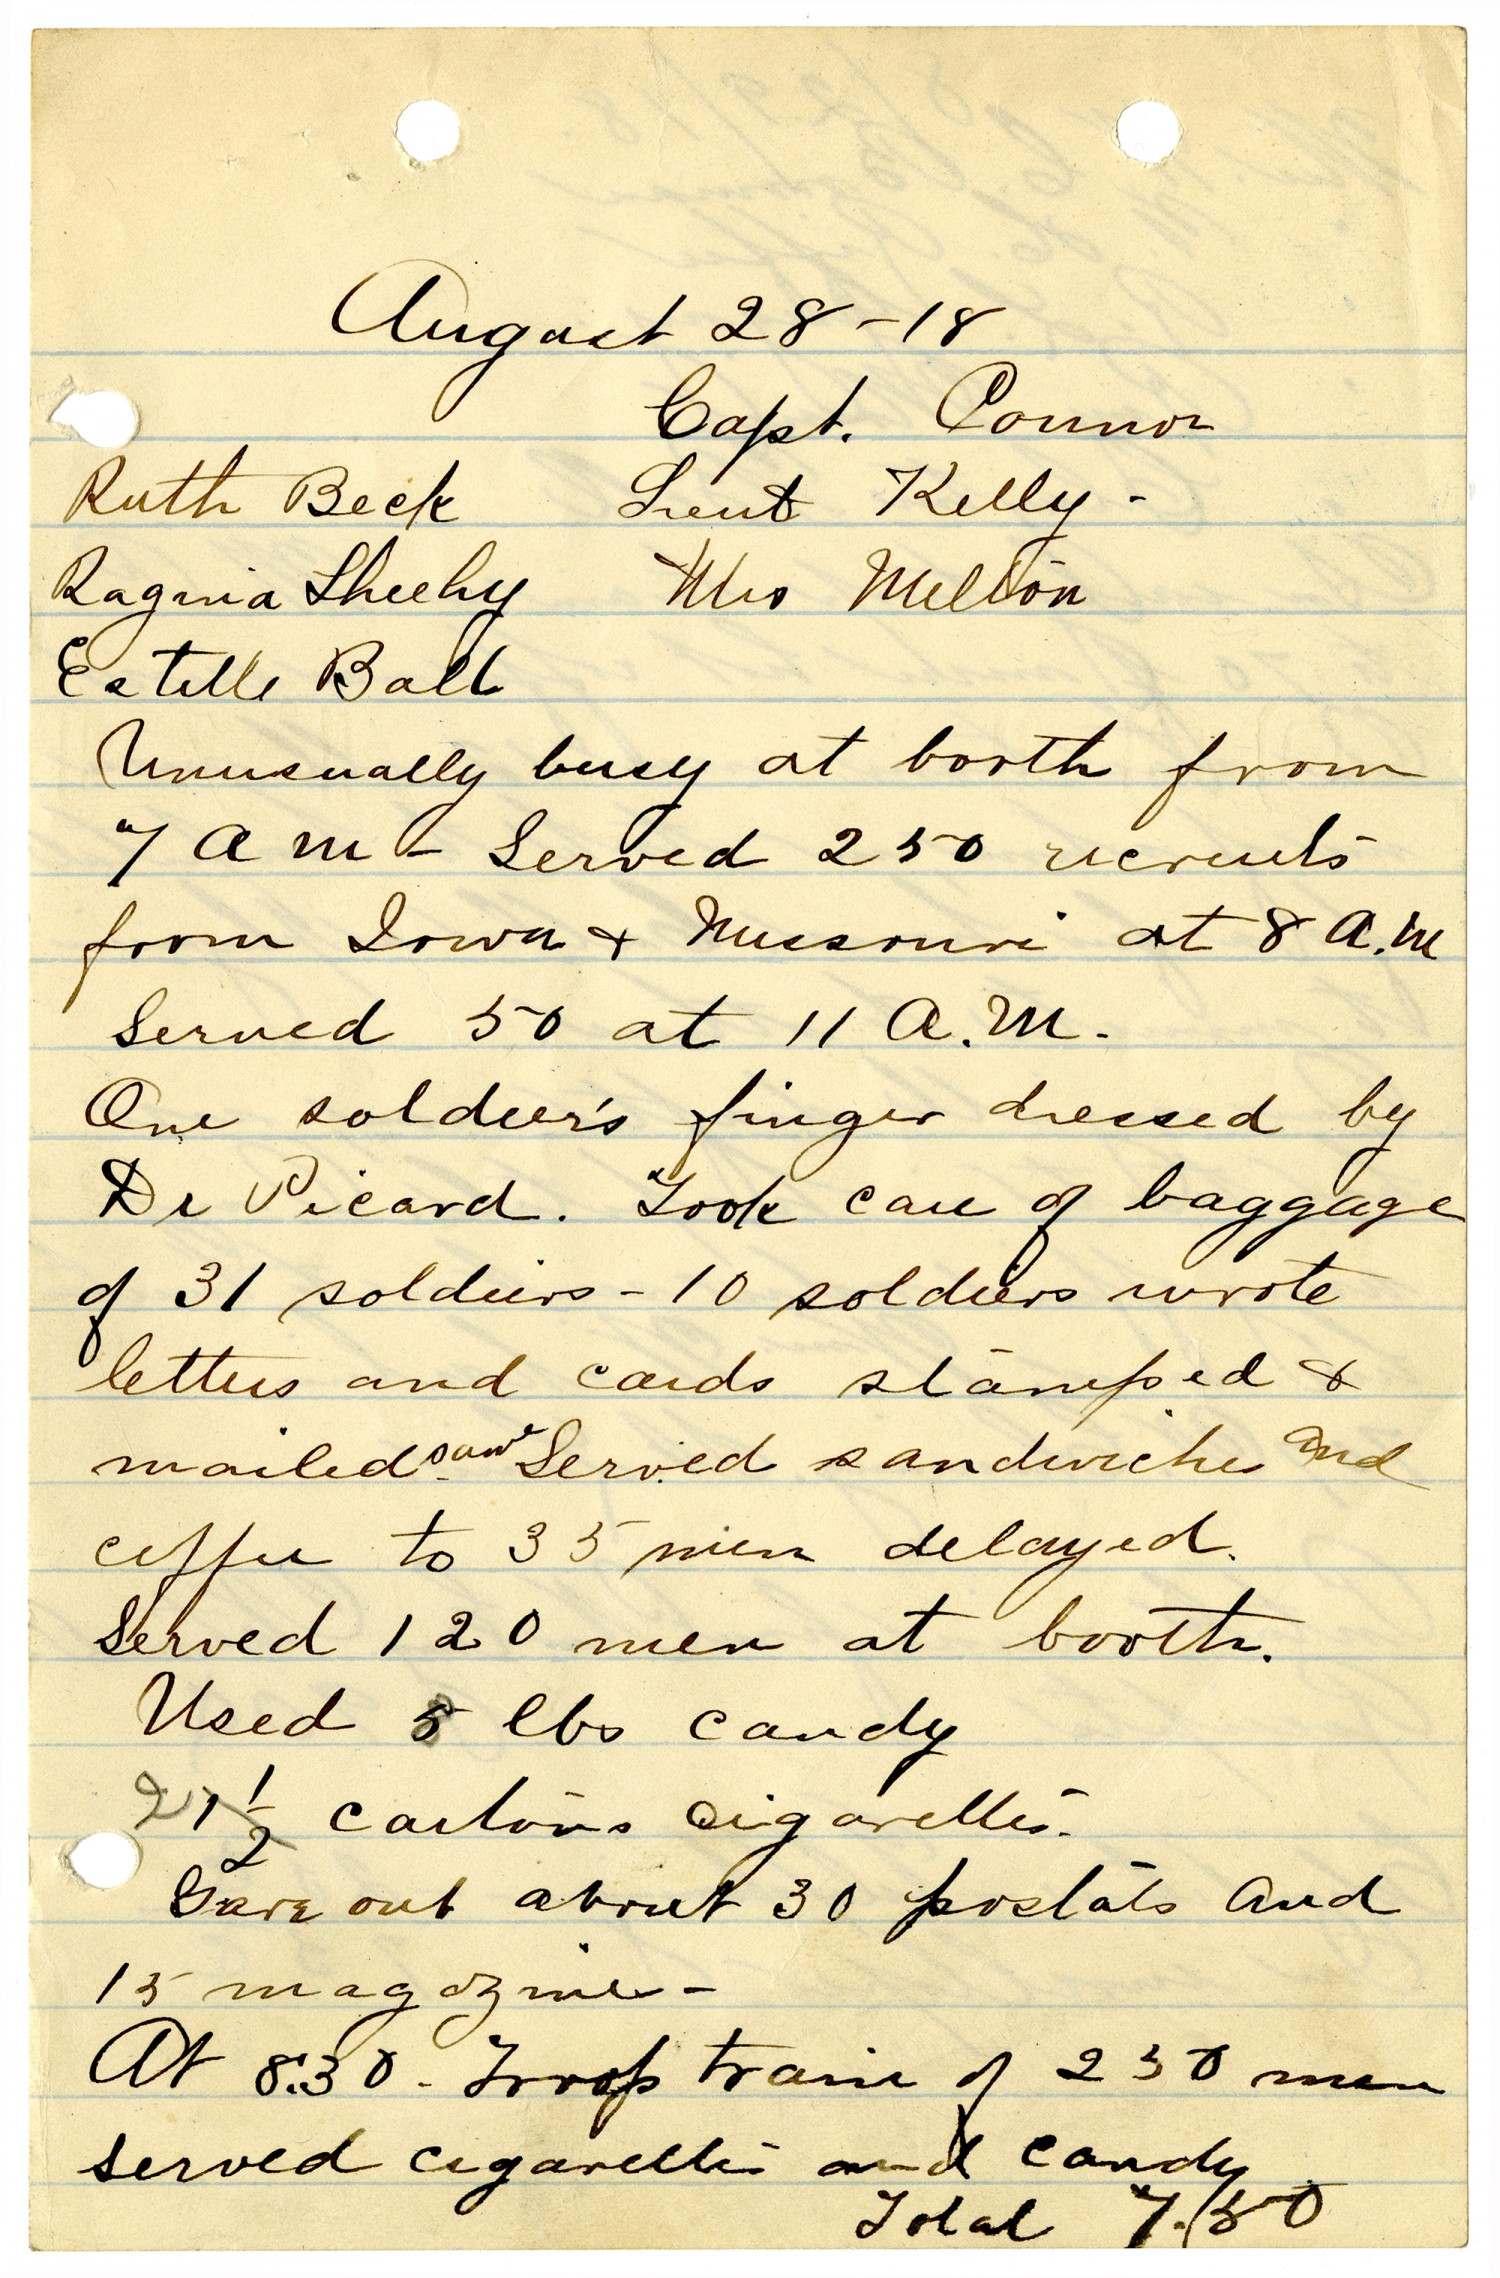 August 28-18
Capt. Connor
Ruth Beck Lieut Kelly -
Ragina Sheehy Mrs Mellon
Estelle Ball
Unusually busy at booth from
7 A M - Served 250 recruits
from Iowa & Missouri at 8 A.M
Served 50 at 11 A.M.
One soldier's finger dressed by
Dr Picard. Took care of baggage
of 31 soldiers - 10 soldiers wrote
letters and cards stamped &
mailed same Served sandwiches and
coffee to 35 men delayed.
Served 120 men at booth.
Used 5 lbs candy
2 1 1/2 cartons cigarettes.
Gave out about 30 postals and
15 magazines -
At 8:30 - Troop train of 250 men
served cigarettes and candy
Total 750